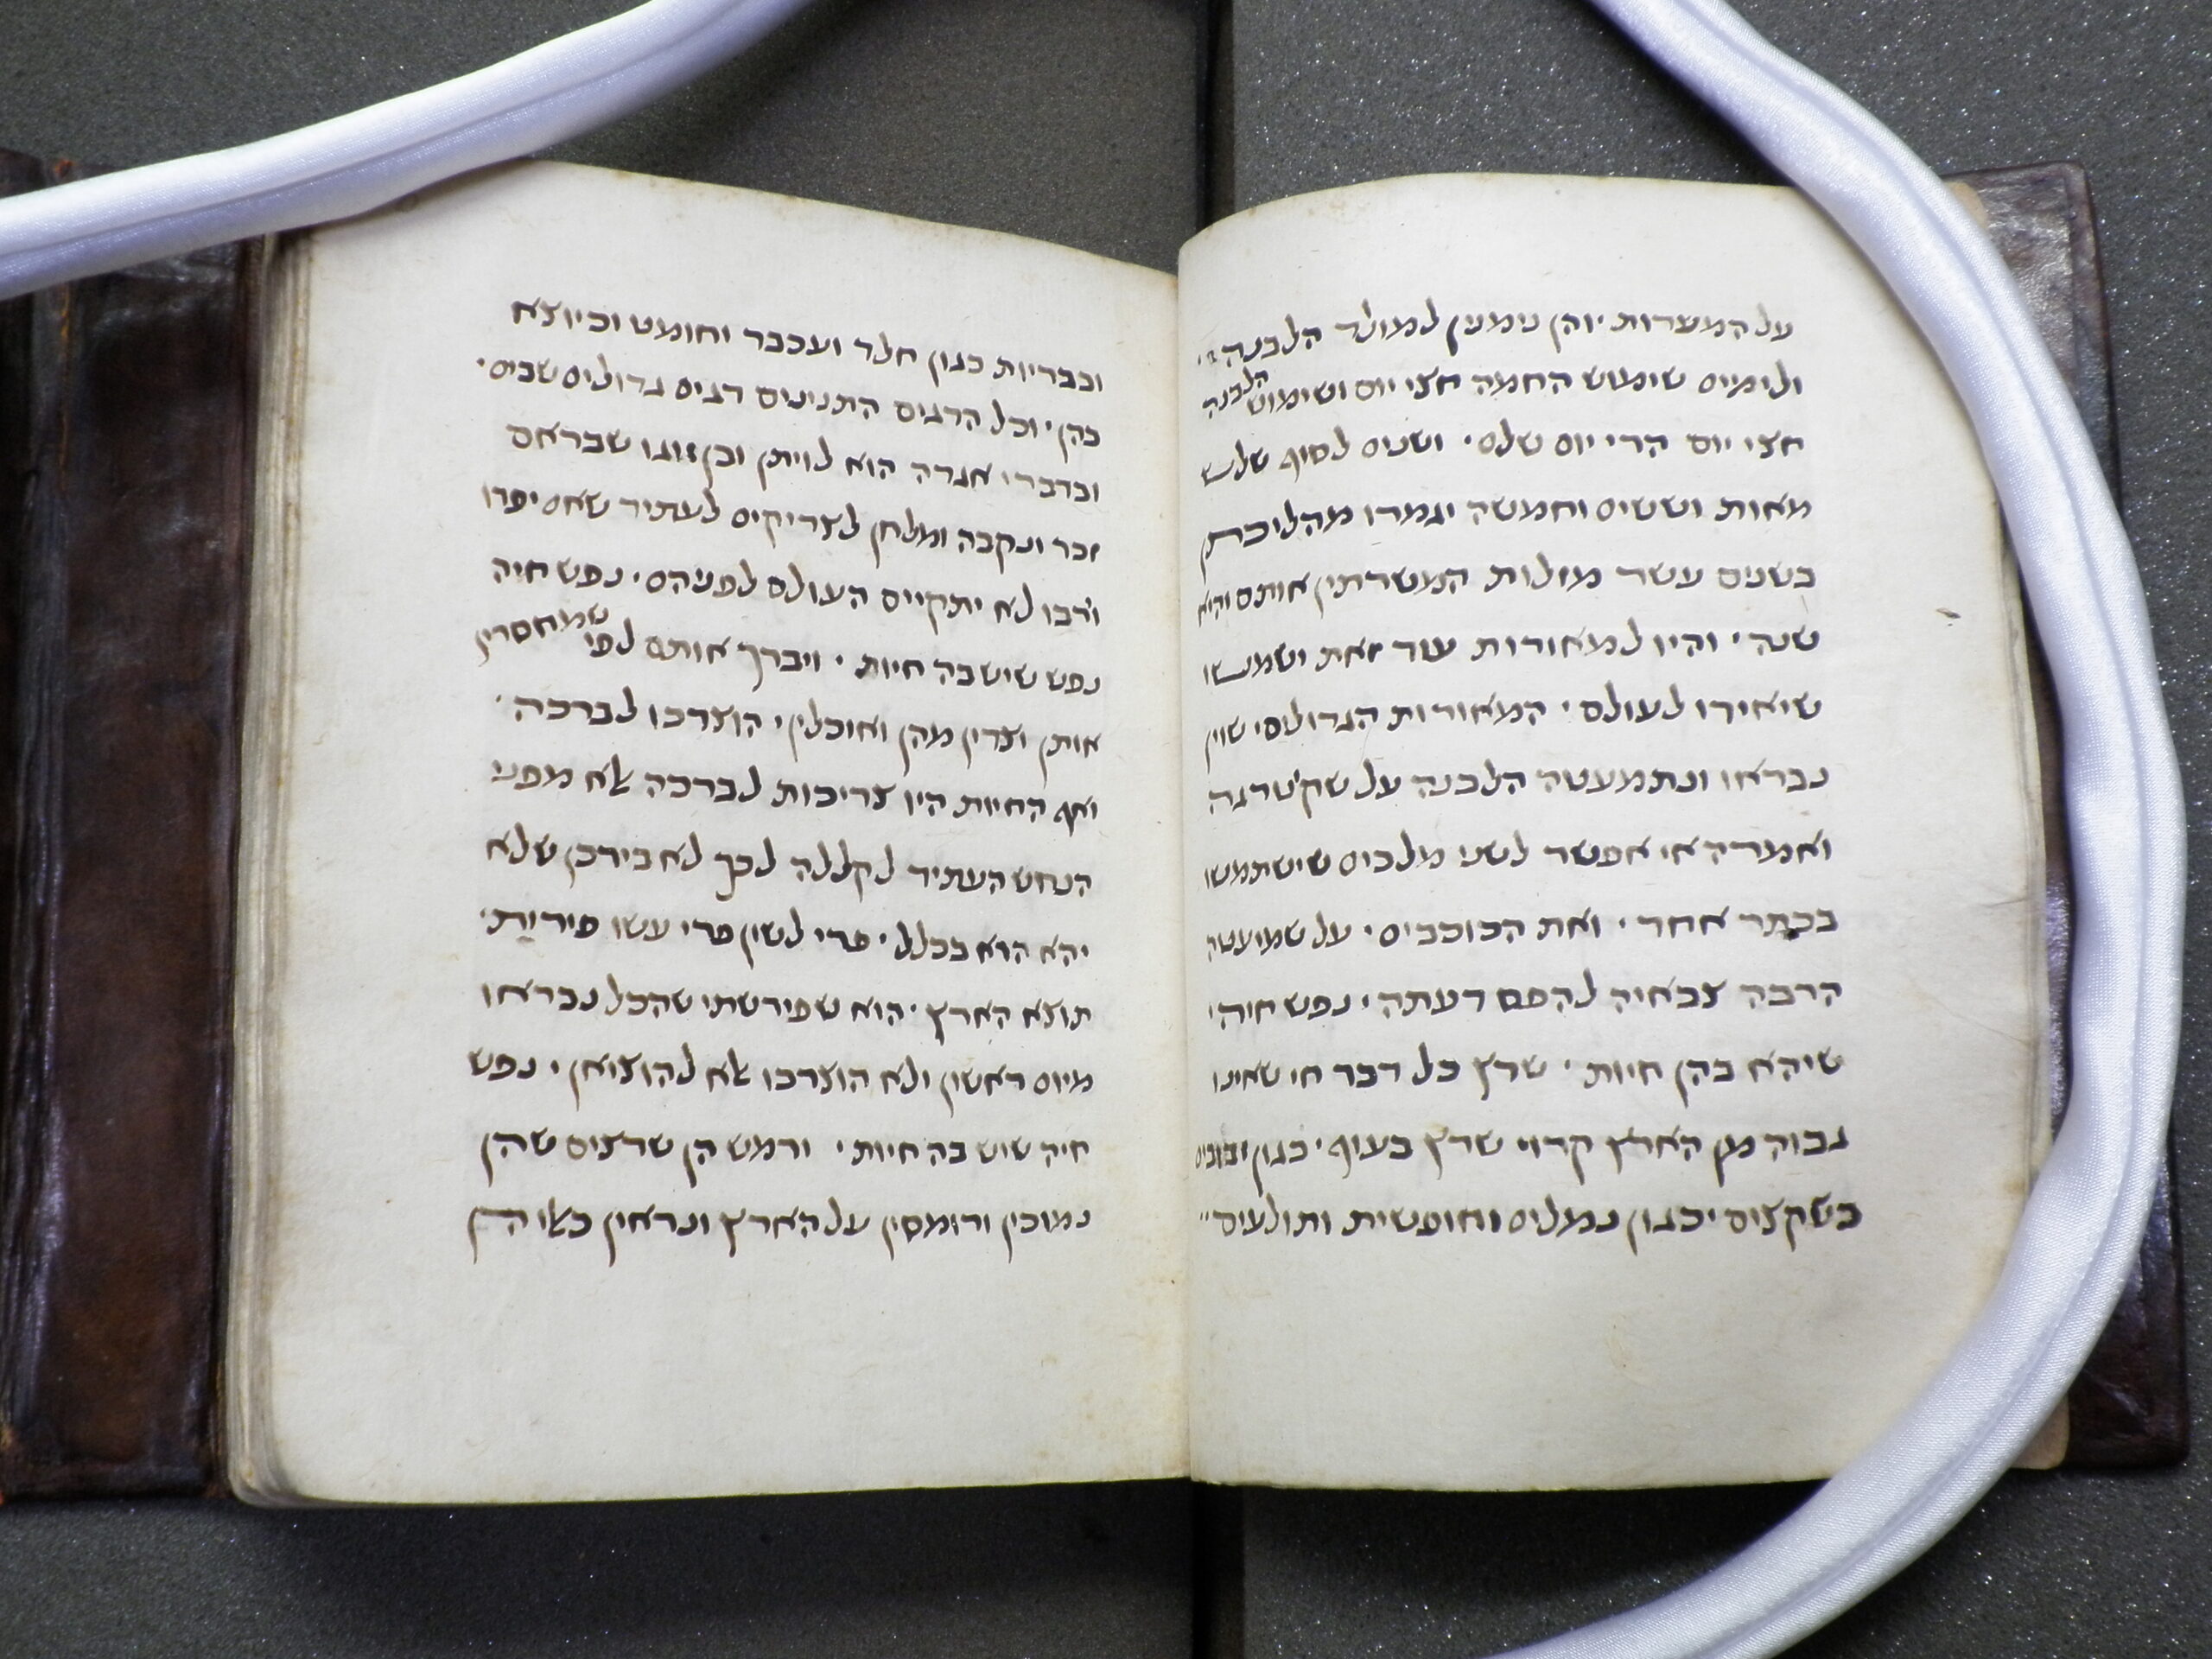 על המערות יוהן נימנין למולד הלבנה
ולימים שימוש החמה חצי יום ושימוש הלבנה
חצי יום הרי יום שלם · ושנים לסוף שלש
מאות וששים וחמשה יגמרו מהליכתן
בשנים עשר מזלות המשרתין אותם והיא
שנה · והיו למאורות עוד זאת ישמשו
שיאירו לעולם · המאורות הגדולים · שוין
נבראו ונתמעטה הלבנה על שקיטרגה
ואמרה אי אפשר לשני מלכים שישתמשו
בכתר אחד · ואת הכוכבים · על שמיעטה
הרבה צבאיה להפס דעתה · נפש חיה ·
שיהא בהן חיות · שרץ כל דבר חי שאינו
גבוה מן הארץ קרוי שרץ בעוף · כגון זבובים
בשקצים · כגון נמלים וחופשית ותולעים
ובבריות כגון חלד ועכבר וחומט וכיוצא
בהן · וכל הדגים התנינים דגים גדולים שבים ·
ובדברי אגדה הוא לויתן ובן זוגו שבראם
זכר ונקבה ומלחן לצדיקים לעתיד שאם יפרו
וירבו לא יתקיים העולם לפניהם · נפש חיה
נפש שיש בה חיות · ויברך אותם לפי שמחסרין
אותן וצדין מהן ואוכלין · הוצרכו לברכה ·
ואף החיות היו צריכות לברכה אלא מפני
הנחש העתיד לקללה לכך לא בירכן שלא
יהא הוא בכלל · פרו לשון פרי עשו פירות ·
תוצא הארץ · הוא שפירשתי שהכל נבראו
מיום ראשון ולא הוצרכו אלא להוציאן · נפש
חיה שיש בה חיות · ורמש הן שרצים שהן
נמוכין ורומסין על הארץ ונראין כאלו הן